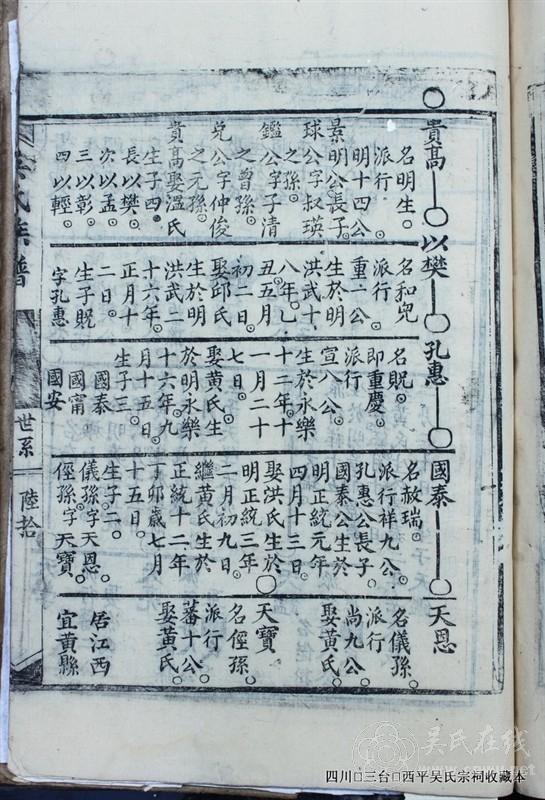 貴高 以樊 孔惠 國泰 天恩
名明生。
派行
明十四公
景明公長子。
球公字叔瑛
之孫。
鑑公字子清
之曾孫。
兌公字仲俊
之元孫。
貴高娶溫氏
生子四。
長以樊。
次以孟。
三以彰。
四以輕。
名和兜
派行
重一公
生於明
洪武十
八年乙
丑五月
初二日。
娶邱氏
生於明
洪武二
十六年。
正月十
二日。
生子貺
字孔惠
名貺。
即重慶。
派行
宣八公。
生於永樂
十二年十
一月二十
七日。
娶黃氏生
於明永樂
十六年九
月十五日。
生子三。
國泰
國甯
國安
名赦瑞。
派行祥九公。
孔惠公長子。
國泰公生於
明正統元年
四月十三日。
娶洪氏生於
明正統三年
二月初九日。
繼黃氏生於
正統十二年
丁卯歲七月
十五日。
生子二。
儀孫字天恩。
俓孫字天寶。
名儀孫。
派行
尚九公。
娶黃氏。
天寶
名俓孫。
派行
蕃十公。
娶黃氏。
居江西
宜黃縣
氏族譜
世系
陸拾
吴氏在线
www.cnwu.net
四川□三台□西平吴氏宗祠收藏本